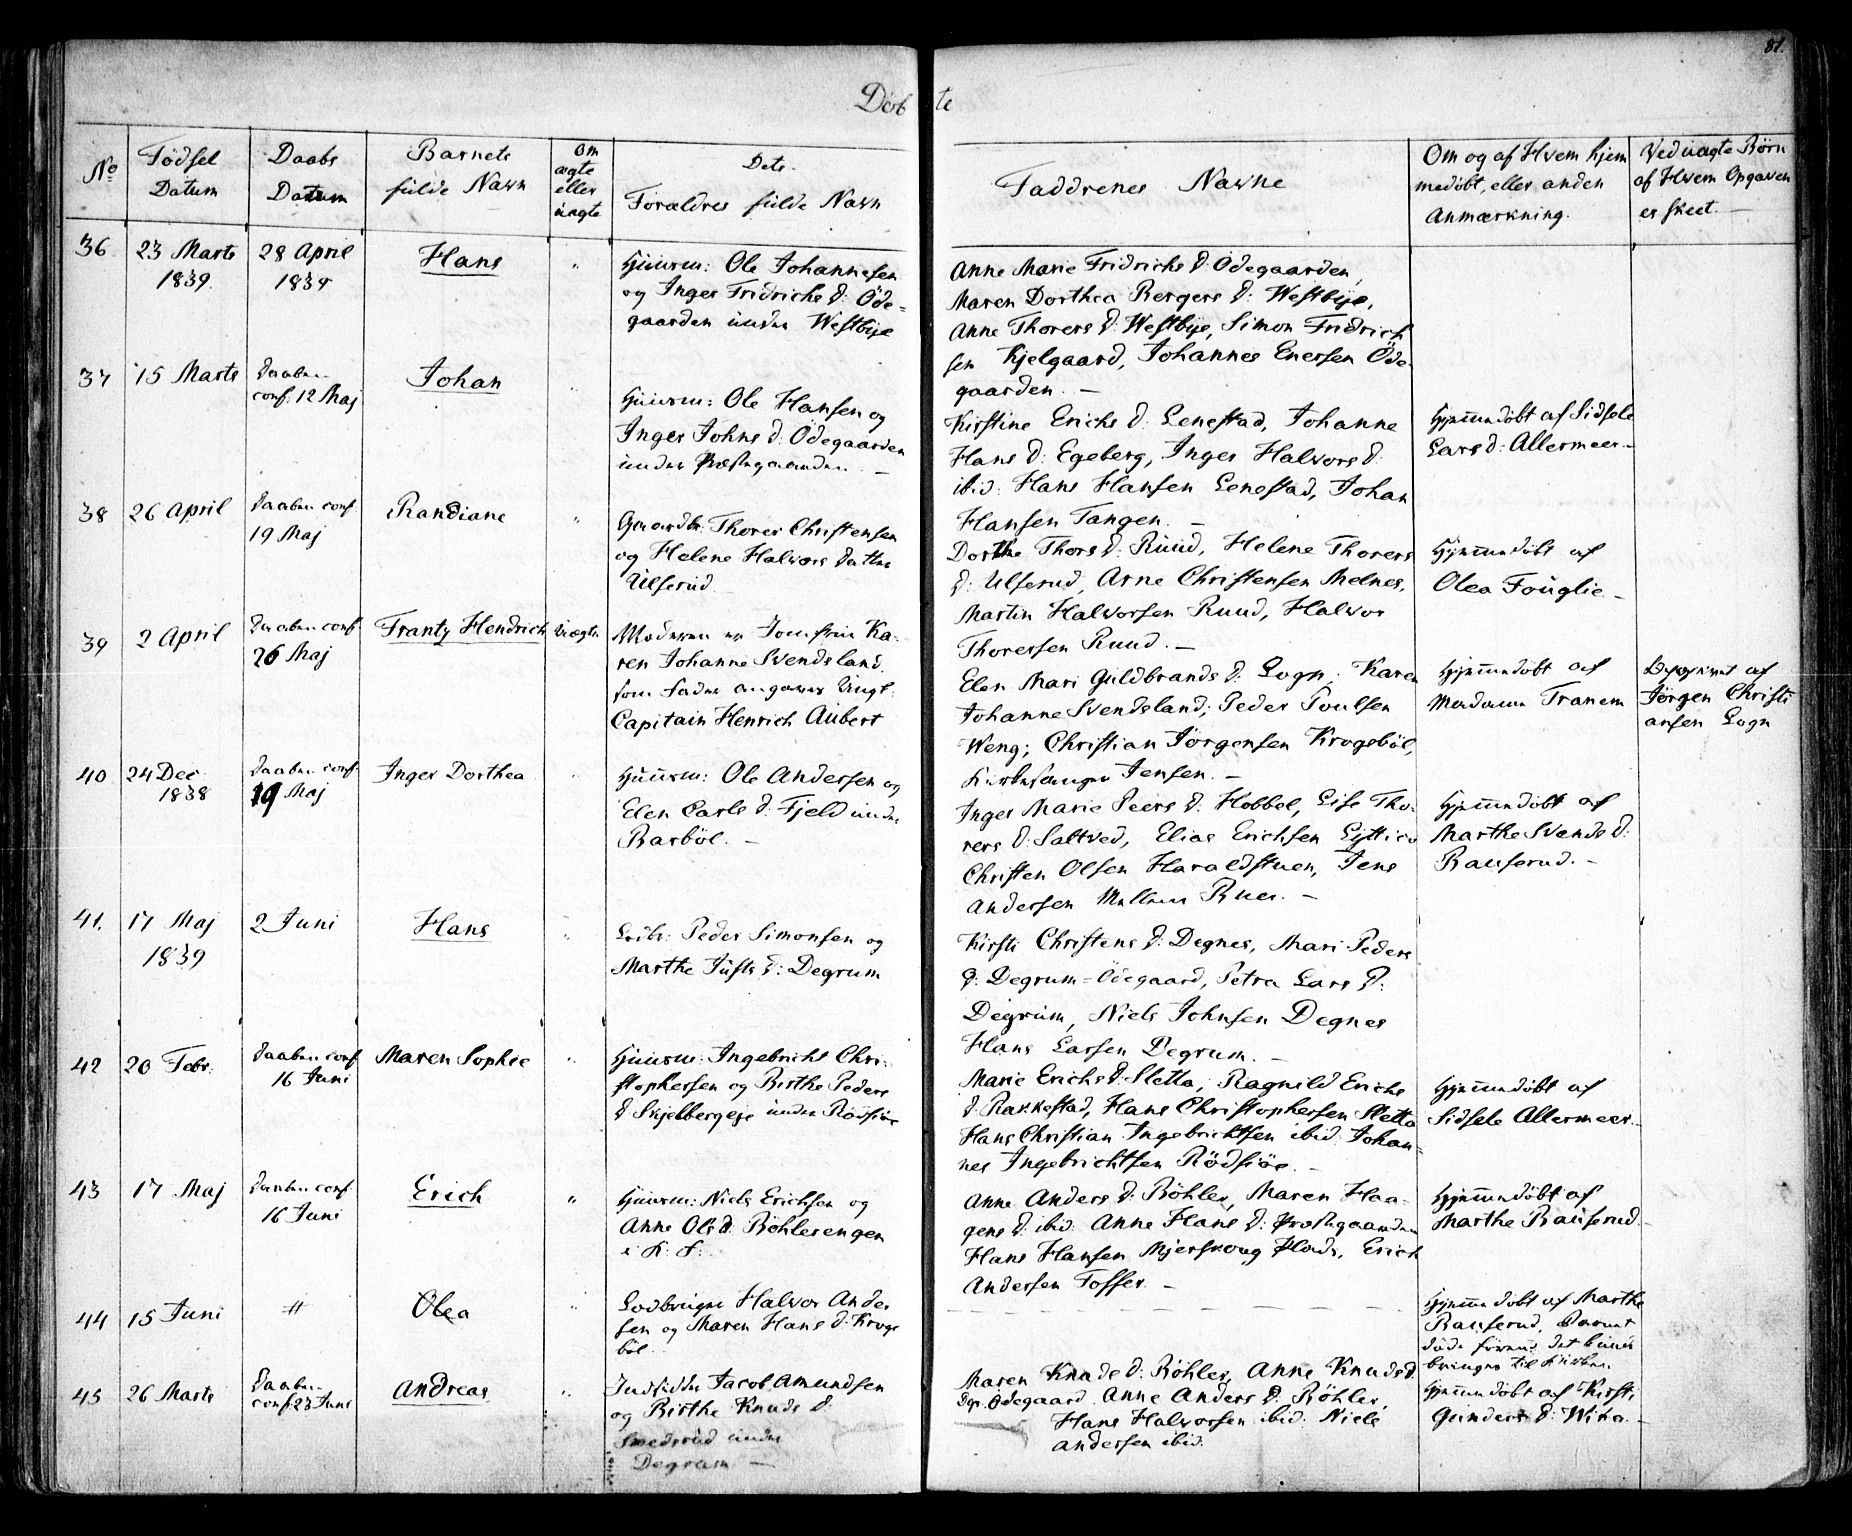 81.
Döbte
No
Födsel
Datum
Daabs
Datum
Barnets
fulde Navn
Om
ægte
eller
uægte
Dets
Forældres fulde Navn
Faddrenes Navne
Om og af Hvem hjem
medöbt, eller anden
Anmærkning.
Ved uægte Børn
af Hvem Opgaven
er skeet. —
36
23 Marts
1839.
28 April
1839
Hans
"
Huusm: Ole Johannesen
og Inger Fridrichs d: Öde-
gaarden under Westbye
Anne Marie Fridrichs d: Ödegaarden,
Maren Dorthea Bergers d: Westbye,
Anne Thorers d: Westbye, Simon Fridrich
sen Kjelgaard, Johannes Enersen Öde-
gaarden. —
37
15 Marts
Daaben
conf: 12 Maj
Johan
"
Huusm: Ole Hansen og
Inger Johns d: Ödegaarden
under Præstegaarden. —
Kirstine Erichs d: Lenestad, Johanne
Hans d: Egeberg, Inger Halvors d:
ibid: Hans Hansen Lenestad, Johan
Hansen Tangen. —
Hjemmedöbt af Sidsele
Lars d: Allermeer. —
38
26 April
Daaben conf
19 Maj
Randiane
"
Gaardbr: Thorer Christensen
og Helene Halvors datter
Ulserud
Dorthe Thors d: Ruud, Helene Thorers
d: Ulserud, Arne Christensen Melnes,
Martin Halvorsen Ruud, Halvor
Thoressen Ruud. —
Hjemmedöbt af
Olea Fouglie. —
39
2 April
Daaben conf
26 Maj
Frantz Hendrich
Uægte
Moderen er Jomfrue Ka-
ren Johanne Svendsland.
som Fader angives Ungk:
Capitain Henrich Aubert
Elen Mari Guldbrands d: Sogn; Karen
Johanne Svendsland; Peder Poulsen
Weng; Christian Jörgensen Krogsböl,
Kirkesanger Jensen. —
Hjemmedöbt af
Madame Tranem
Deponent af
Jörgen Christi
ansen Sogn
40
24 Dec
1838
Daaben conf
19 Maj
Inger Dorthea
"
Huusm: Ole Andersen og
Elen Carls d: Fjeld under
Barböl. —
Inger Marie Peers d: Hobbel, Lise Tho-
rers d: Saltved, Elias Erichsen
Christen Olsen Haraldstuen, Jens
Andersen Mellem Ruer. —
Hjemmedöbt af
Marthe Svends d:
Rauserud. —
41.
17 Maj
1839
2 Juni
Hans
"
Peder Simonsen og
Marthe Justs d: Degrum
Kirsti Christens d: Degnes, Mari Peders
d: Degrum-Ödegaard, Petra Lars d:
Degrum, Niels Johnsen Degnes
Hans Larsen Degrum. —
42
20 Febr:
Daaben conf
16 Juni
Maren Sophie
"
Huusm: Ingebricht Chri-
stophersen og Birthe Peders
d Skjelbergeje under Rödsiöe
Marie Erichs d: Sletta, Ragnild Erichs
d: Rakkestad, Hans Christophersen Sletta
Hans Christian Ingebrichtsen ibid: Johan-
nes Ingebrichtsen Rödsiöe. —
Hjemmedöbt af
Sidsele Allermeer. —
43
17 Maj
Daaben conf
16 Juni
Erich
"
Huusm: Niels Erichsen og
Anne Ols d: Böhlersengen
i K: S:
Anne Anders d: Böhler, Maren Haa-
gens d: ibid: Anne Hans d: Præstegaarden
Hans Hansen Mjerskoug Plads, Erich
Andersen Tosser. —
Hjemmedöbt af
Marthe Rauserud. —
44
15 Juni
"
Olea
"
Lodbruger Halvor Ander
sen og Maren Hans d: Krogs
böl
Hjemmedöbt af Marthe
Rauserud, Barnet
döde förend det kunde
bringes til Kirken
45
26 Marts
Daaben
conf: 23 Juni
Andreas
"
Indsidder Jacob Amundsen
og Birthe Knuds d:
Smedsrud under
Degrum —
Maren Knuds d: Böhler, Anne Knuds d.
Dgr: Ödegaard. Anne Anders d: Böhler,
Hans Halvorsen ibid: Niels
Andersen ibid:
Hjemmedöbt af Kirsti
Gunders d: Wika. —